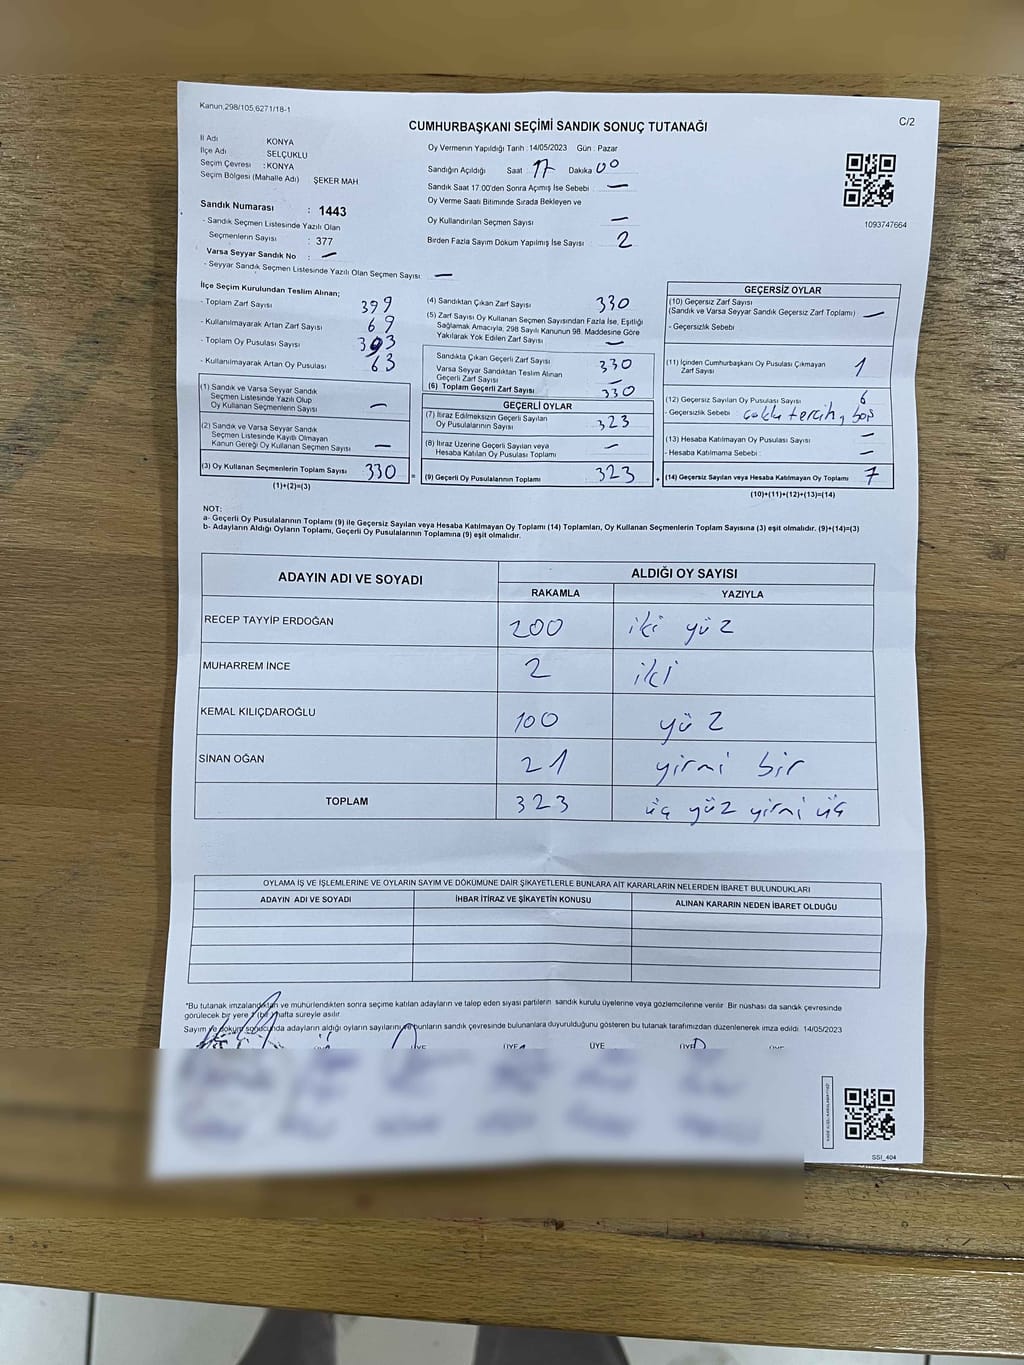 Kanun 298/105,6271/18-1
C/2
CUMHURBAŞKANI SEÇİMİ SANDIK SONUÇ TUTANAĞI
İl Adı KONYA
İlçe Adı SELÇUKLU
Seçim Çevresi : KONYA
Seçim Bölgesi (Mahalle Adı) ŞEKER MAH
Sandık Numarası : 1443
- Sandık Seçmen Listesinde Yazılı Olan
Seçmenlerin Sayısı : 377
Varsa Seyyar Sandık No : —
- Seyyar Sandık Seçmen Listesinde Yazılı Olan Seçmen Sayısı : —
Oy Vermenin Yapıldığı Tarih : 14/05/2023 Gün : Pazar
Sandığın Açıldığı Saat 17 Dakika 00
Sandık Saat 17:00'den Sonra Açımış İse Sebebi —
Oy Verme Saati Bitiminde Sırada Bekleyen ve
Oy Kullandırılan Seçmen Sayısı —
Birden Fazla Sayım Döküm Yapılmış İse Sayısı 2
1093747664
İlçe Seçim Kurulundan Teslim Alınan;
- Toplam Zarf Sayısı 399
- Kullanılmayarak Artan Zarf Sayısı 69
- Toplam Oy Pusulası Sayısı 393
- Kullanılmayarak Artan Oy Pusulası 63
(1) Sandık ve Varsa Seyyar Sandık
Seçmen Listesinde Yazılı Olup
Oy Kullanan Seçmenlerin Sayısı —
(2) Sandık ve Varsa Seyyar Sandık
Seçmen Listesinde Kayıtlı Olmayan
Kanun Gereği Oy Kullanan Seçmen Sayısı —
(3) Oy Kullanan Seçmenlerin Toplam Sayısı 330
(1)+(2)=(3)
(4) Sandıktan Çıkan Zarf Sayısı 330
(5) Zarf Sayısı Oy Kullanan Seçmen Sayısından Fazla İse, Eşitliği
Sağlamak Amacıyla, 298 Sayılı Kanunun 98. Maddesine Göre
Yakılarak Yok Edilen Zarf Sayısı —
Sandıkta Çıkan Geçerli Zarf Sayısı 330
Varsa Seyyar Sandıktan Teslim Alınan
Geçerli Zarf Sayısı —
(6) Toplam Geçerli Zarf Sayısı 330
GEÇERLİ OYLAR
(7) İtiraz Edilmeksizin Geçerli Sayılan
Oy Pusulasının Sayısı 323
(8) İtiraz Üzerine Geçerli Sayılan veya
Hesaba Katılan Oy Pusulası Toplamı —
= (9) Geçerli Oy Pusulalarının Toplamı 323
GEÇERSİZ OYLAR
(10) Geçersiz Zarf Sayısı
(Sandık ve Varsa Seyyar Sandık Geçersiz Zarf Toplamı) —
- Geçersizlik Sebebi
(11) İçinden Cumhurbaşkanı Oy Pusulası Çıkmayan
Zarf Sayısı 1
(12) Geçersiz Sayılan Oy Pusulası Sayısı 6
- Geçersizlik Sebebi çoklu tercih, boş
(13) Hesaba Katılmayan Oy Pusulası Sayısı —
- Hesaba Katılmama Sebebi : —
+ (14) Geçersiz Sayılan veya Hesaba Katılmayan Oy Toplamı 7
(10)+(11)+(12)+(13)=(14)
NOT:
a- Geçerli Oy Pusulalarının Toplamı (9) ile Geçersiz Sayılan veya Hesaba Katılmayan Oy Toplamı (14) Toplamları, Oy Kullanan Seçmenlerin Toplam Sayısına (3) eşit olmalıdır. (9)+(14)=(3)
b- Adayların Aldığı Oyların Toplamı, Geçerli Oy Pusulalarının Toplamına (9) eşit olmalıdır.
ADAYIN ADI VE SOYADI ALDIĞI OY SAYISI
RAKAMLA YAZIYLA
RECEP TAYYİP ERDOĞAN 200 iki yüz
MUHARREM İNCE 2 iki
KEMAL KILIÇDAROĞLU 100 yüz
SİNAN OĞAN 21 yirmi bir
TOPLAM 323 üç yüz yirmi üç
OYLAMA İŞ VE İŞLEMLERİNE VE OYLARIN SAYIM VE DÖKÜMÜNE DAİR ŞİKAYETLERLE BUNLARA AİT KARARLARIN NELERDEN İBARET BULUNDUKLARI
ADAYIN ADI VE SOYADI İHBAR İTİRAZ VE ŞİKAYETİN KONUSU ALINAN KARARIN NEDEN İBARET OLDUĞU
*Bu tutanak imzalandıktan ve mühürlendikten sonra seçime katılan adayların ve talep eden siyasi partilerin sandık kurulu üyelerine veya gözlemcilerine verilir. Bir nüshası da sandık çevresinde
görülecek bir yere 1 (bir) hafta süreyle asılır.
Sayım ve döküm sonucunda adayların aldığı oyların sayılarını ve bunların sandık çevresinde bulunanlara duyurulduğunu gösteren bu tutanak tarafımızdan düzenlenerek imza edildi. 14/05/2023
ÜYE ÜYE ÜYE ÜYE
SSI_404